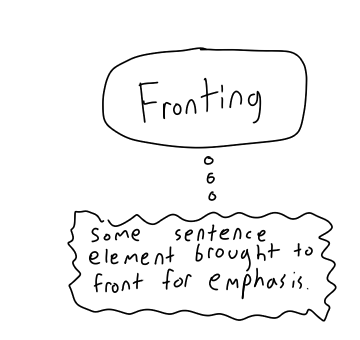 Fronting
Some sentence
element brought to
front for emphasis.